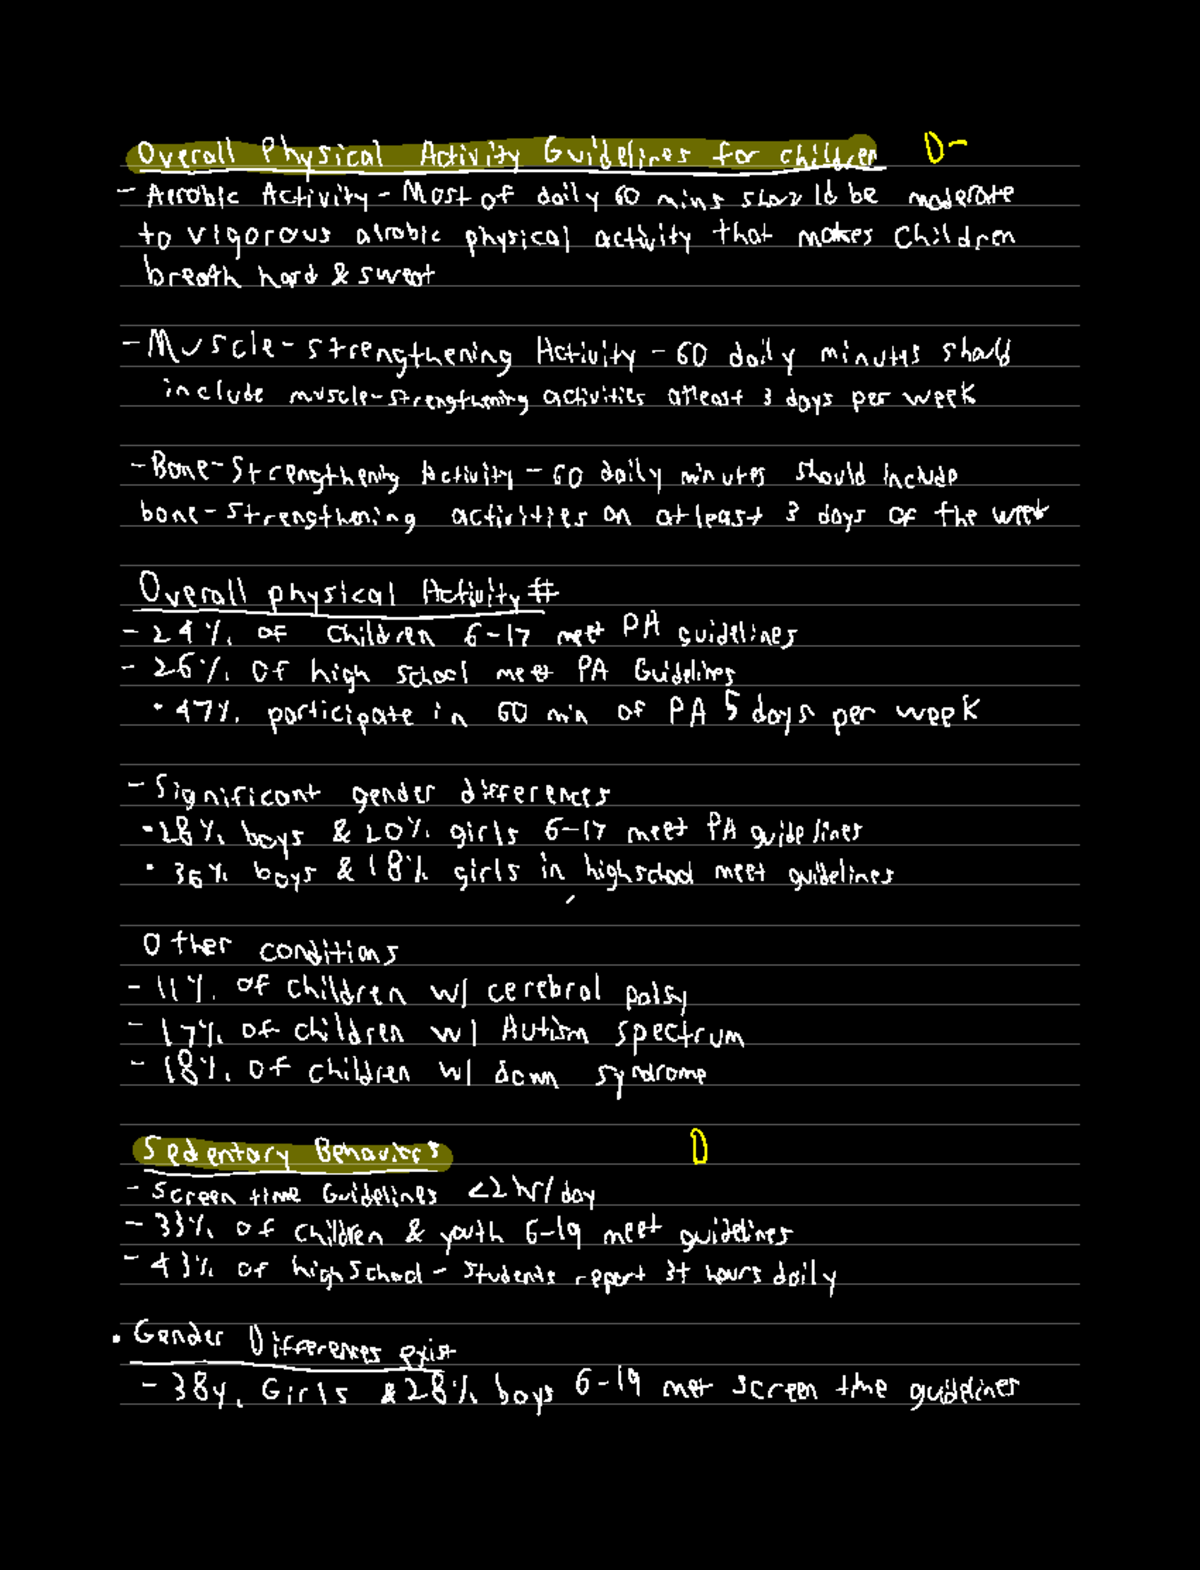 Overall Physical Activity Guidelines for children D-
- Aerobic Activity - Most of daily 60 mins should be moderate
to vigorous airobic physical activity that makes children
breath hard & sweat
- Muscle-strengthening Activity - 60 daily minutes should
include muscle-strengthening activities atleast 3 days per week
- Bone-Strengthening Activity - 60 daily minutes should include
bone-strengthening activities on atleast 3 days of the week
Overall physical Activity #
- 24% of children 6-17 meet PA guidelines
- 26% of high school meet PA Guidelines
• 47% participate in 60 min of PA 5 days per week
- Significant gender differences
• 28% boys & 20% girls 6-17 meet PA guidelines
• 36% boys & 18% girls in highschool meet guidelines
Other conditions
- 11% of children w/ cerebral palsy
- 17% of children w/ Autism spectrum
- 18% of children w/ down syndrome
Sedentary Behaviors D
- Screen time Guidelines <2 hr/day
- 33% of children & youth 6-19 meet guidelines
- 43% of high School - students report 3+ hours daily
• Gender Differences exist
- 38% Girls & 28% boys 6-19 met screen time guidelines